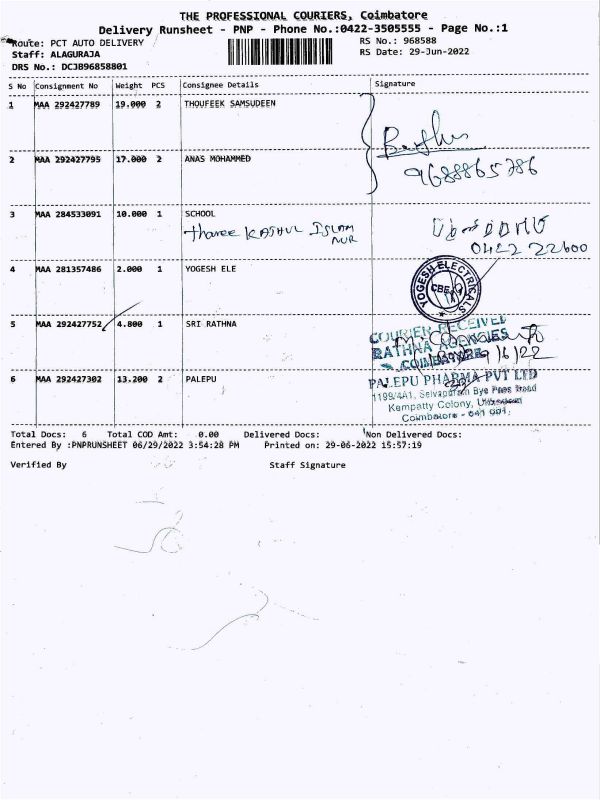 THE PROFESSIONAL COURIERS, Coimbatore
Delivery Runsheet - PNP - Phone No.:0422-3505555 - Page No.:1
Route: PCT AUTO DELIVERY
RS No.: 968588
Staff: ALAGURAJA
RS Date: 29-Jun-2022
DRS No.: DCJB96858801
S No Consignment No Weight PCS Consignee Details Signature
1 MAA 292427789 19.000 2 THOUFEEK SAMSUDEEN
2 MAA 292427795 17.000 2 ANAS MOHAMMED
9688865786
3 MAA 284533091 10.000 1 SCHOOL
ISLAM
NUR
0422 22600
4 MAA 281357486 2.000 1 YOGESH ELE
YOGESH ELECTRICALS
CBE
5 MAA 292427752 4.800 1 SRI RATHNA
COURIER RECEIVED
RATHNA AGENCIES
COIMBATORE
6 MAA 292427302 13.200 2 PALEPU
PALEPU PHARMA PVT LTD
1199/4A1, Selvapuram Bye Pass Road
Kempatty Colony,
Coimbatore - 641 001.
Total Docs: 6 Total COD Amt: 0.00 Delivered Docs: Non Delivered Docs:
Entered By :PNPRUNSHEET 06/29/2022 3:54:28 PM Printed on: 29-06-2022 15:57:19
Verified By Staff Signature